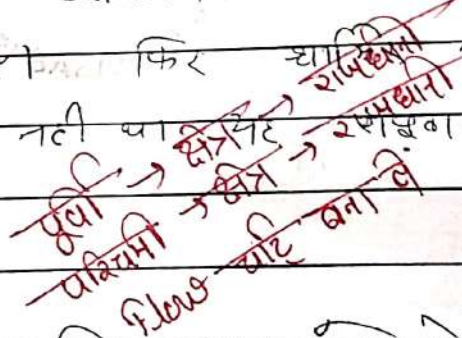 फिर
नही था
पूर्वी → क्षेत्र → राजधानी
पश्चिमी → क्षेत्र → राजधानी
Flow चार्ट बना लें